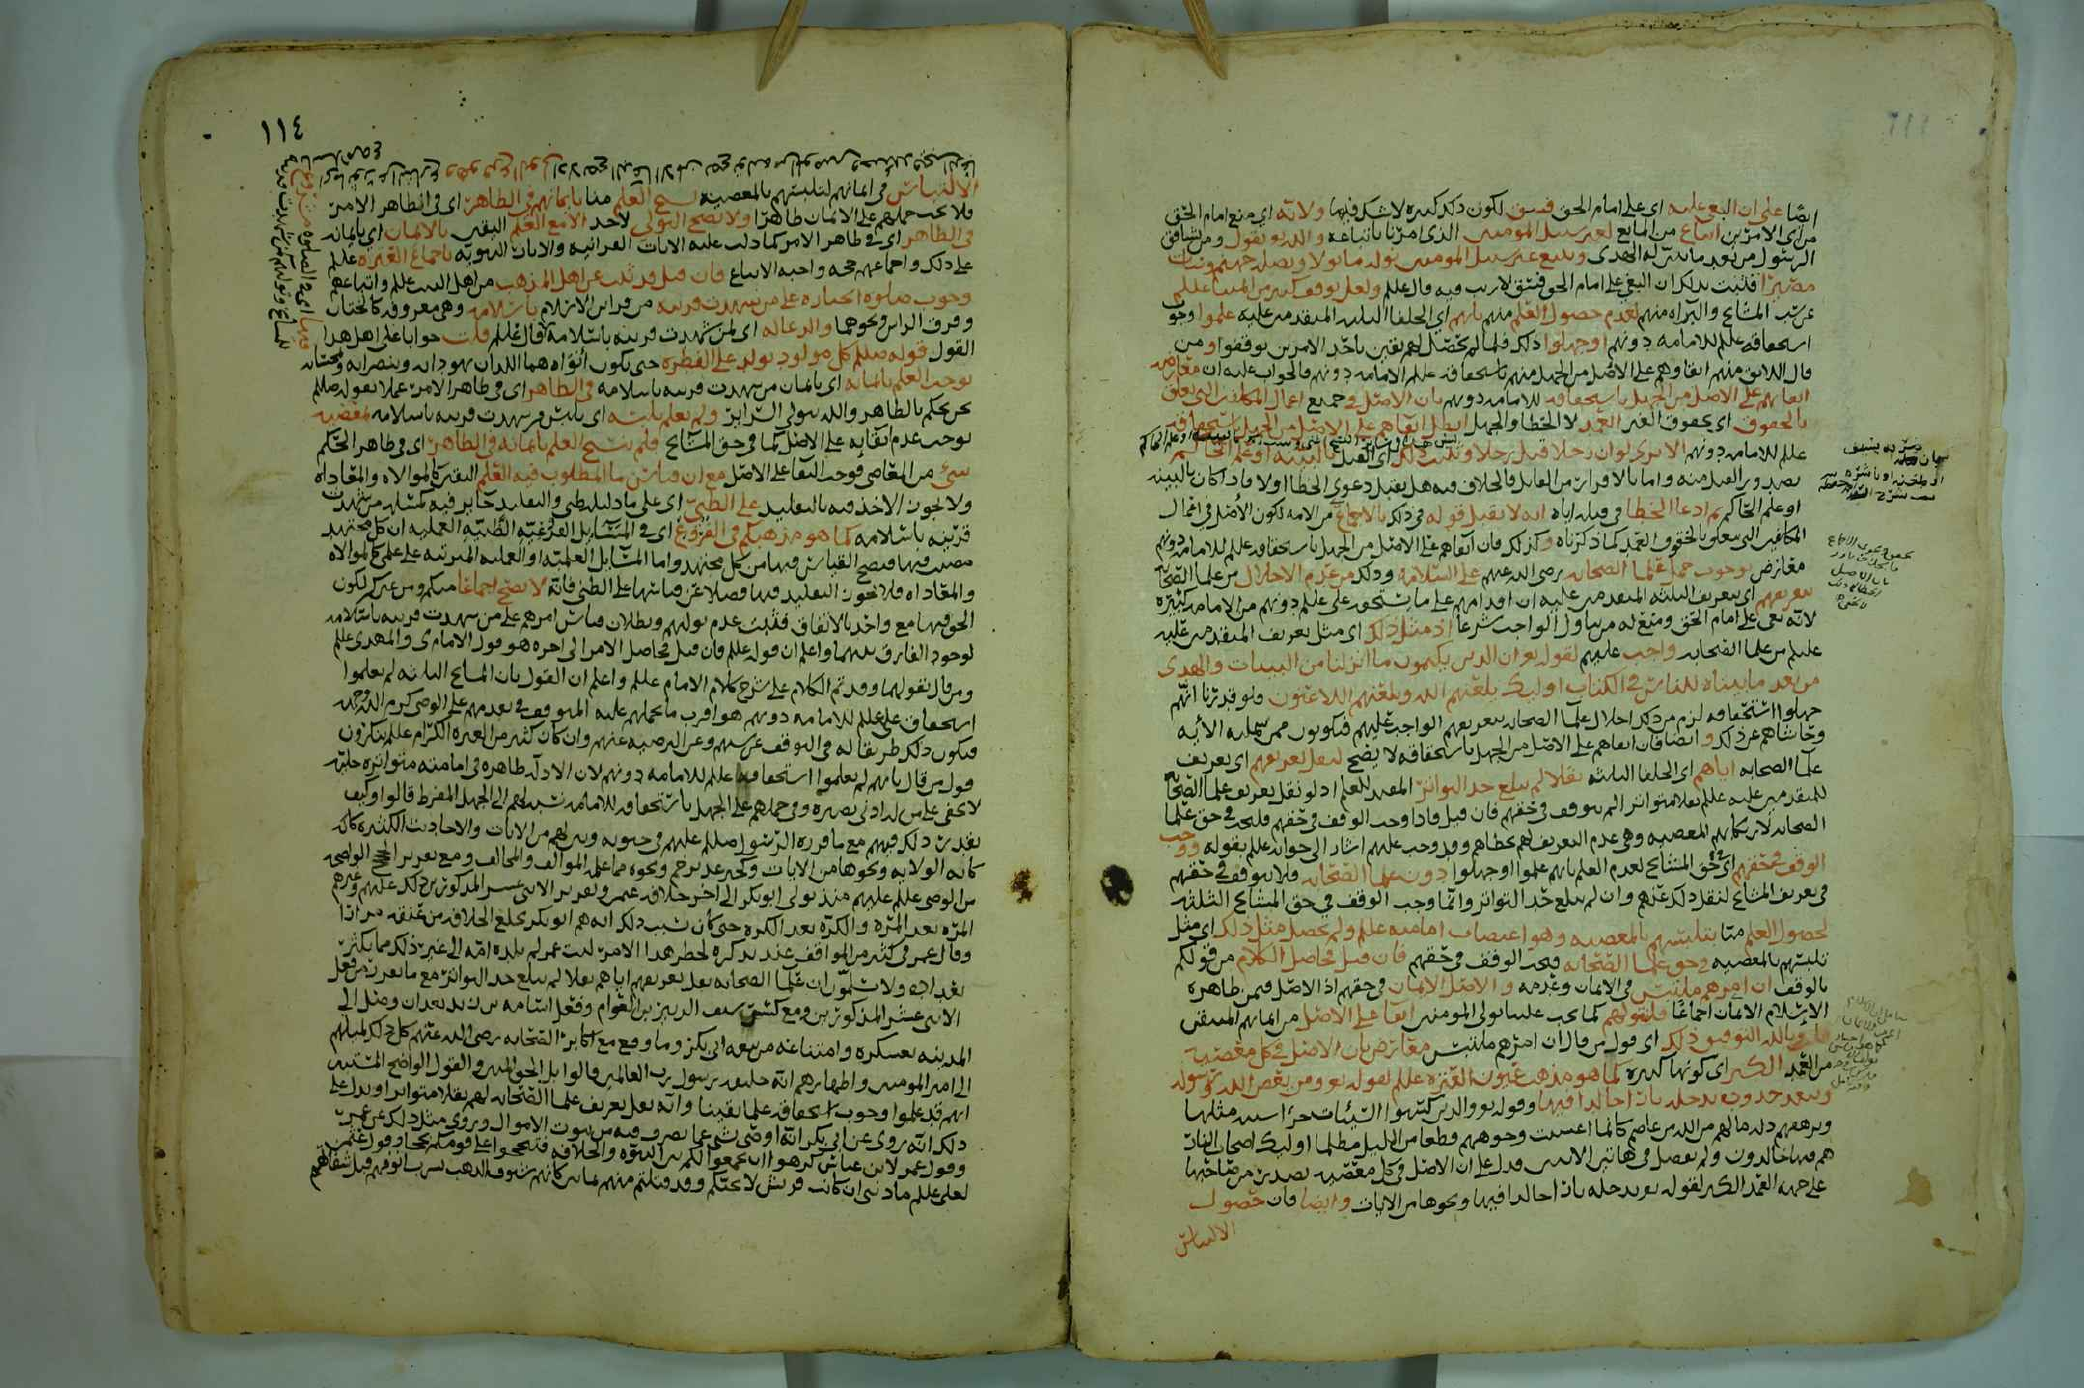 ايضا على ان البغي عليه اي على امام الحق فسق لكون ذلك كبيرة لا شك فيها ولانه اي منع امام الحق
من اي الامرين اتباع من المانع لغير سبيل المومنين الذي امرنا باتباعه والله تعالى يقول ومن يشاقق
الرسول من بعد ما تبين له الهدى ويتبع غير سبيل المومنين نوله ما تولى ونصله جهنم وساءت
مصيرا فثبت بذلك ان البغي على امام الحق فسق لا ريب فيه قال علم ولعل توقف كثير من
عن سب المشايخ والبراه منهم لعدم حصول العلم منهم بانهم اي الخلفا الثلثه المتقدمين عليه علموا وجوب
استحقاقه علم للامامه دونهم او جهلوا ذلك فلما لم يحصل لهم يقين باحد الامرين توقفوا ومن
قال اللائق منهم ابقاوهم على الاصل من الجهل منهم باستحقاقه علم الامامه دونهم فالجواب عليه ان معارض
ابقائهم على الاصل من الجهل باستحقاقه للامامه دونهم بان الاصل في جميع اعمال المكلفين التي تعلق
بالحقوق اي بحقوق الغير العمد لا الخطا والجهل ابطل ابقاهم على الاصل من الجهل باستحقاقه
علم للامامه دونهم الا ترى لو ان رجلا قتل رجلا وثبت ذلك اي القتل بالبينه او علم الحاكم
بصدور القتل منه واما بالاقرار من القاتل فالخلاف فيه هل يقبل دعوى الخطا او لا فاذا كان بالبينه
او علم الحاكم ثم ادعا الخطا في قتله اياه انه لا يقبل قوله في ذلك بالاجماع من الامه لكون الأصل في افعال
المكلفين التي تعلق بالحقوق العمد كما ذكرناه وكذلك فان ابقاهم على الاصل من الجهل باستحقاقه علم للامامه دونهم
معارض بوجوب حمل علما الصحابه رضي الله عنهم على السلامة وذلك من عدم الاخلال من علما الصحابه
بتعريفهم اي بتعريف الثلثه المتقدمين عليه ان اقدامهم على ما يستحق علي علم دونهم من الامامه كبيره
لانه بغي على امام الحق ومنع له من تناول الواجب شرعا اذ مثل ذلك اي مثل تعريف المتقدمين عليه
عليم من علما الصحابه واجب عليهم لقوله تعالى ان الذين يكتمون ما انزلنا من البينات والهدى
من بعد ما بيناه للناس في الكتاب اولئك يلعنهم الله ويلعنهم اللاعنون ولو قدرنا انهم
جهلوا استحقاقه لزم من ذلك اخلال علما الصحابه بتعريفهم الواجب عليهم فيكونون ممن شملته الأيه
وحاشاهم عن ذلك وايضا فان ابقاهم على الاصل من الجهل باستحقاقه لا يصح لنقل تعريفهم اي تعريف
علما الصحابه اياهم اي الخلفا الثلثه نقلا لم يبلغ حد التواتر المفيد للعلم اذ لو نقل تعريف علما الصحابه
للمتقدمين عليه علم نقلا متواترا لم نتوقف في حقهم فان قيل فاذا وجب الوقف في حقهم فليجب في حق علما
الصحابه لارتكابهم المعصيه وهي عدم التعريف لهم بخطاهم وقد وجب عليهم اشار الى جوابه علم بقوله ووجب
الوقف في حقهم اي في حق المشايخ لعدم العلم بانهم علموا او جهلوا دون علما الصحابه فلا نتوقف في حقهم
في تعريف المشايخ لنقل ذلك عنهم وان لم يبلغ حد التواتر وانما وجب الوقف في حق المشايخ الثلثه
لحصول العلم منا بتلبسهم بالمعصيه وهو اغتصاب امامته علم ولم يحصل مثل ذلك اي مثل
تلبسهم بالمعصيه في حق علما الصحابه فيجب الوقف في حقهم فان قيل فحاصل الكلام من قولكم
بالوقف ان امرهم ملتبس في الايمان وعدمه والاصل الايمان في حقهم اذ الاصل فيمن ظاهره
الإسلام الايمان اجماعا فلنتولهم كما يجب علينا تولي المومنين ابقا على الاصل من ايمانهم المتيقن
قلت وبالله التوفيق ذلك اي قول من قال ان امرهم ملتبس معارض بان الاصل في كل معصيه
من العمد الكبر اي كونها كبيرة كما هو مذهب عيون العتره علم لقوله تعالى ومن يعص الله ورسوله
ويتعد حدوده يدخله نارا خالدا فيها وقوله تعالى والذين كسبوا السيئات جزاء سيئه بمثلها
وترهقهم ذله ما لهم من الله من عاصم كانما اغشيت وجوههم قطعا من الليل مظلما اولئك اصحاب النار
هم فيها خالدون ولم يفصل في هاتين الايتين فدل على ان الاصل في كل معصيه تصدر من صاحبها
على جهه العمد الكبر لقوله تعالى يدخله نارا خالدا فيها ونحوها من الايات وايضا فان حصول
الالتباس
١١٤
الالتباس في ايمانهم لتلبسهم بالمعصيه نسخ العلم منا بايمانهم في الظاهر اي في الظاهر الامر
فلا يجب حملهم على الايمان ظاهرا ولا يصح التولي لاحد الا مع العلم اليقين بالايمان اي بايمانه
في الظاهر اي في ظاهر الامر كما دلت عليه الايات القرانيه والاثار النبويه باجماع العتره علم
على ذلك واجماعهم حجه واجبه الاتباع فان قيل قد ثبت عن اهل المذهب من اهل البيت علم واتباعهم
وجوب صلوة الجنازه على من شهدت قرينه من قراين الاسلام باسلامه وهي معروفه كالختان
وفرق الراس ونحوهما والدعا له اي لمن شهدت قرينه باسلامه قال علم قلت جوابا على اهل هذا
القول قوله صلم كل مولود يولد على الفطره حتى يكون ابواه هما اللذان يهودانه وينصرانه ويمجسانه
يوجب العلم بايمانه اي بايمان من شهدت قرينه باسلامه في الظاهر اي في ظاهر الامر عملا بقوله صلم
نحن نحكم بالظاهر والله يتولى السرائر ولم نعلم تلبسه اي تلبس من شهدت قرينه باسلامه بمعصيه
توجب عدم ابقائه على الاصل كما في حق المشايخ فلم ينسخ العلم بايمانه في الظاهر اي في ظاهر الحكم
شيء من المعاصي فوجب البقا على الاصل مع ان قياس ما المطلوب فيه العلم اليقين كالموالاه والمعاداه
ولا يجوز الاخذ فيه بالتقليد على الظني اي على ما دليله ظني والتقليد جايز فيه كمسئله من شهدت
قرينه باسلامه كما هو مذهبكم في الفروع اي في المسايل الفرعيه الظنيه العمليه ان كل مجتهد
مصيب فيها فيصح القياس فيها من كل مجتهد واما المسايل العلميه او العمليه المترتبه على علم كالموالاه
والمعاداه فلا يجوز التقليد فيها فضلا عن قياسها على الظني فانه لا يصح اجماعا منكم ومن غيركم لكون
الحق فيها مع واحد بالاتفاق فثبت عدم توليهم وبطلان قياس امرهم على من شهدت قرينه باسلامه
لوجود الفارق بينهما واعلم ان قوله علم فان قيل فحاصل الامر الى اخره هو قول الامام ي والمهدي علم
ومن قال بقولهما وقد تم الكلام على شرح كلام الامام علم واعلم ان القول بان المشايخ الثلثه لم يعلموا
استحقاق علي علم للامامه دونهم هو اقرب ما يحملهم عليه المتوقف في تقدمهم على الوصي كرم الله وجهه
فيكون ذلك طريقا له في التوقف عن سبهم وعن الترضيه عنهم وان كان كثير من العتره الكرام علم ينكرون
قول من قال بانهم لم يعلموا استحقاقه علم للامامه دونهم لان الادله ظاهره في امامته متواتره جليه
لا تخفى على من له ادنى بصيره وفي حملهم على الجهل باستحقاقه للامامه نسبه لهم الى الجهل المفرط قالوا وكيف
يقدر ذلك فيهم مع ما قرره الرسول صللم عليهم في حيوته وبين لهم من الايات والاحاديث الكثيره كاية
كايه الولايه ونحوها من الايات وكخبر غدير خم ونحوه مما علمه الموالف والمخالف ومع تقرير الحج الواضحه
من الوصي علم عليهم منذ تولى ابو بكر الى اخر خلافه عمر وتقرير الاثني عشر المذكورين ذلك عليهم وغيرهم
المره بعد المره والكره بعد الكره حتى كان بسبب ذلك انه هم ابو بكر بخلع الخلافه من عنقه مرارا
وقال عمر في كثير من المواقف عند تذكره لخطر هذا الامر ليت عمر لم تلده امه الى غير ذلك مما يكثر
تعداده ولا نسلم ان علما الصحابه نقل تعريفهم اياهم نقلا لم يبلغ حد التواتر مع ما تقرر من فعل
الاثني عشر المذكورين ومع كسر سيف الزبير بن العوام وفعل اسامه بن زيد بعد ان وصل الى
المدينه بعسكره وامتناعه من بيعه ابي بكر وما وقع مع اكابر الصحابه رضي الله عنهم كل ذلك لميلهم
الى امير المومنين واظهارهم انه خليفه رسول رب العالمين قالوا بل الحق المنير والقول الواضح المستبين
انهم قد علموا وجوب استحقاقه علما يقينا وانه نقل تعريف علما الصحابه لهم نقلا متواترا ويدل على
ذلك انه روي عن ابي بكر انه اوصى بشي عما تصرف فيه من بيوت الاموال وروي مثل ذلك عن عمر
وقول عمر لابن عباس كرهوا ان تجمعوا لكم بين النبوه والخلافه فتبجحوا على قومكم بجحا وقول عثمن
لعلي علم ما ذنبي ان كانت قريش لا تحبكم وقد قتلتم منهم ثمانين كانهم شنوف الذهب تشرب انوفهم قبل شفاههم